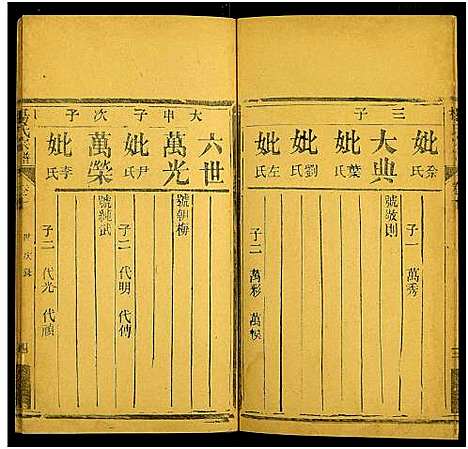 三子
妣余氏
子一 萬秀
大典
號敬則
妣葉氏
妣劉氏
妣左氏
子二 萬彩 萬候
大申子 次子
六世
萬光
號朝梅
妣尹氏
子二 代明 代傳
萬榮
號純武
妣李氏
子二 代光 代禎
楊氏宗譜
世次錄
四